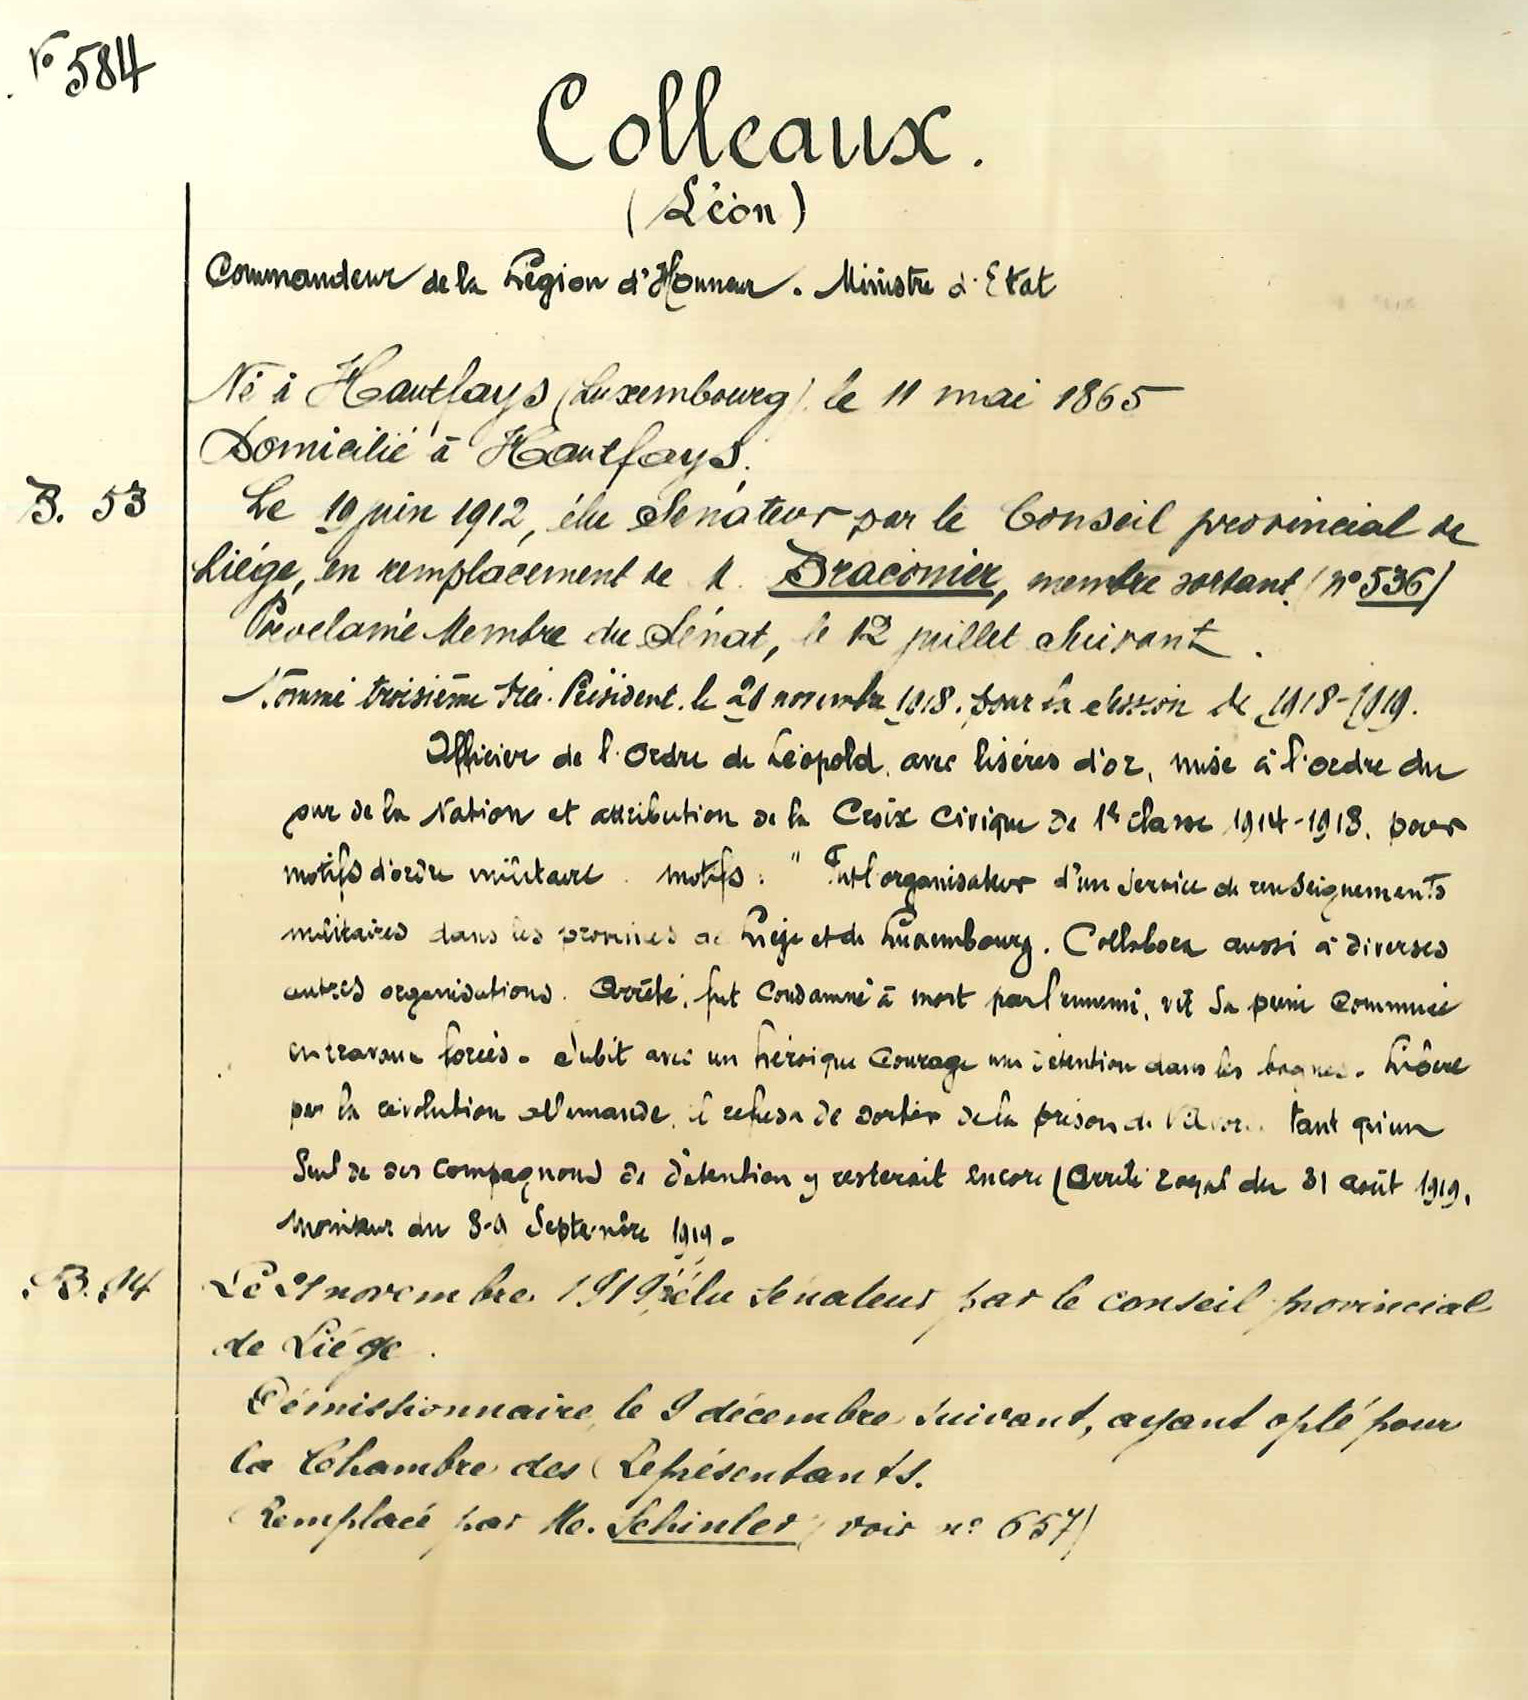 N° 584
Colleaux.
(Léon)
Commandeur de la Légion d'Honneur. Ministre d'Etat
Né à Hautfays (Luxembourg) le 11 mai 1865
Domicilié à Hautfays.
B. 53
Le 19 juin 1912, élu Sénateur par le Conseil provincial de
Liége, en remplacement de M. Braconier, membre sortant (n° 536)
Proclamé Membre du Sénat, le 12 juillet suivant.
Nommé troisième Vice-Président le 21 novembre 1918, pour la session de 1918-1919.
Officier de l'Ordre de Léopold, avec liséres d'or, mise à l'ordre du
jour de la Nation et attribution de la Croix Civique de 1re classe 1914-1918, pour
motifs d'ordre militaire. Motifs: " Fut l'organisateur d'un service de renseignements
militaires dans les provinces de Liége et de Luxembourg. Collabora aussi à diverses
autres organisations. Arrêté, fut condamné à mort par l'ennemi, vit sa peine commuée
en travaux forcés. Subit avec un héroïque courage une détention dans les bagnes. Libéré
par la révolution allemande, il refusa de sortir de la prison de tant qu'un
seul de ses compagnons de détention y resterait encore (Arrêté royal du 31 août 1919,
Moniteur du 8-9 Septembre 1919.
B. 94
Le 27 novembre 1919, réélu Sénateur par le conseil provincial
de Liége.
Démissionnaire, le 9 décembre suivant, ayant opté pour
la Chambre des Représentants.
Remplacé par M. Schinler (voir n° 657)